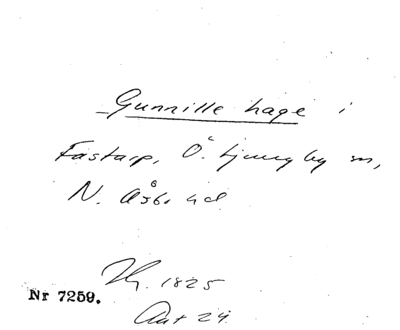 Gunnille hage i
Fastarp, Ö. Ljungby sn,
N. Åsbo hd
Hg. 1825
Nr 7259.
Akt 24.